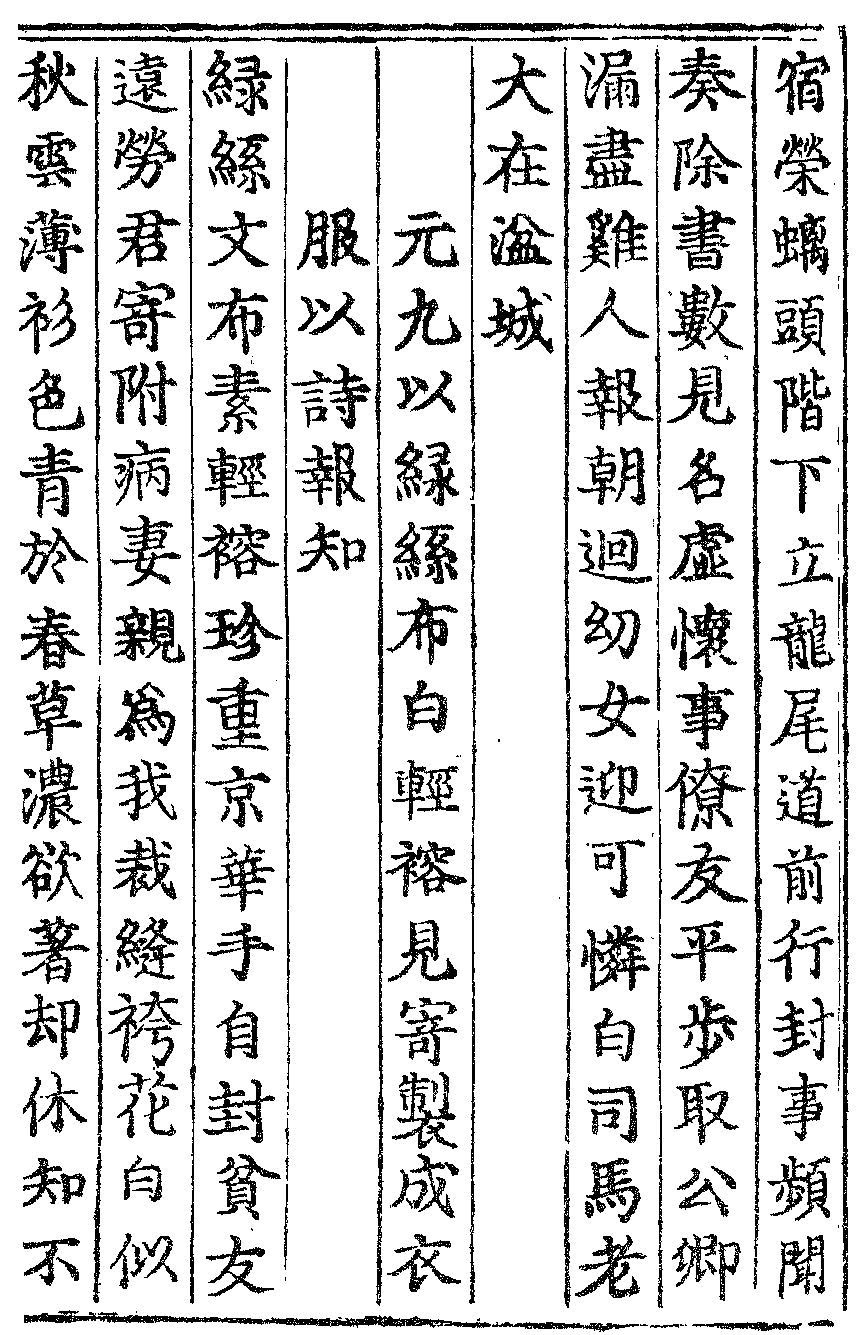 宿榮螭頭階下立龍尾道前行封事頻聞
奏除書數見名虛懷事僚友平步取公卿
漏盡雞人報朝迴幼女迎可憐白司馬老
大在湓城
元九以緑絲布白輕褣見寄製成衣
服以詩報知
緑絲文布素輕褣珍重京華手自封貧友
遠勞君寄附病妻親為我裁縫袴花白似
秋雲薄衫色青於春草濃欲著却休知不